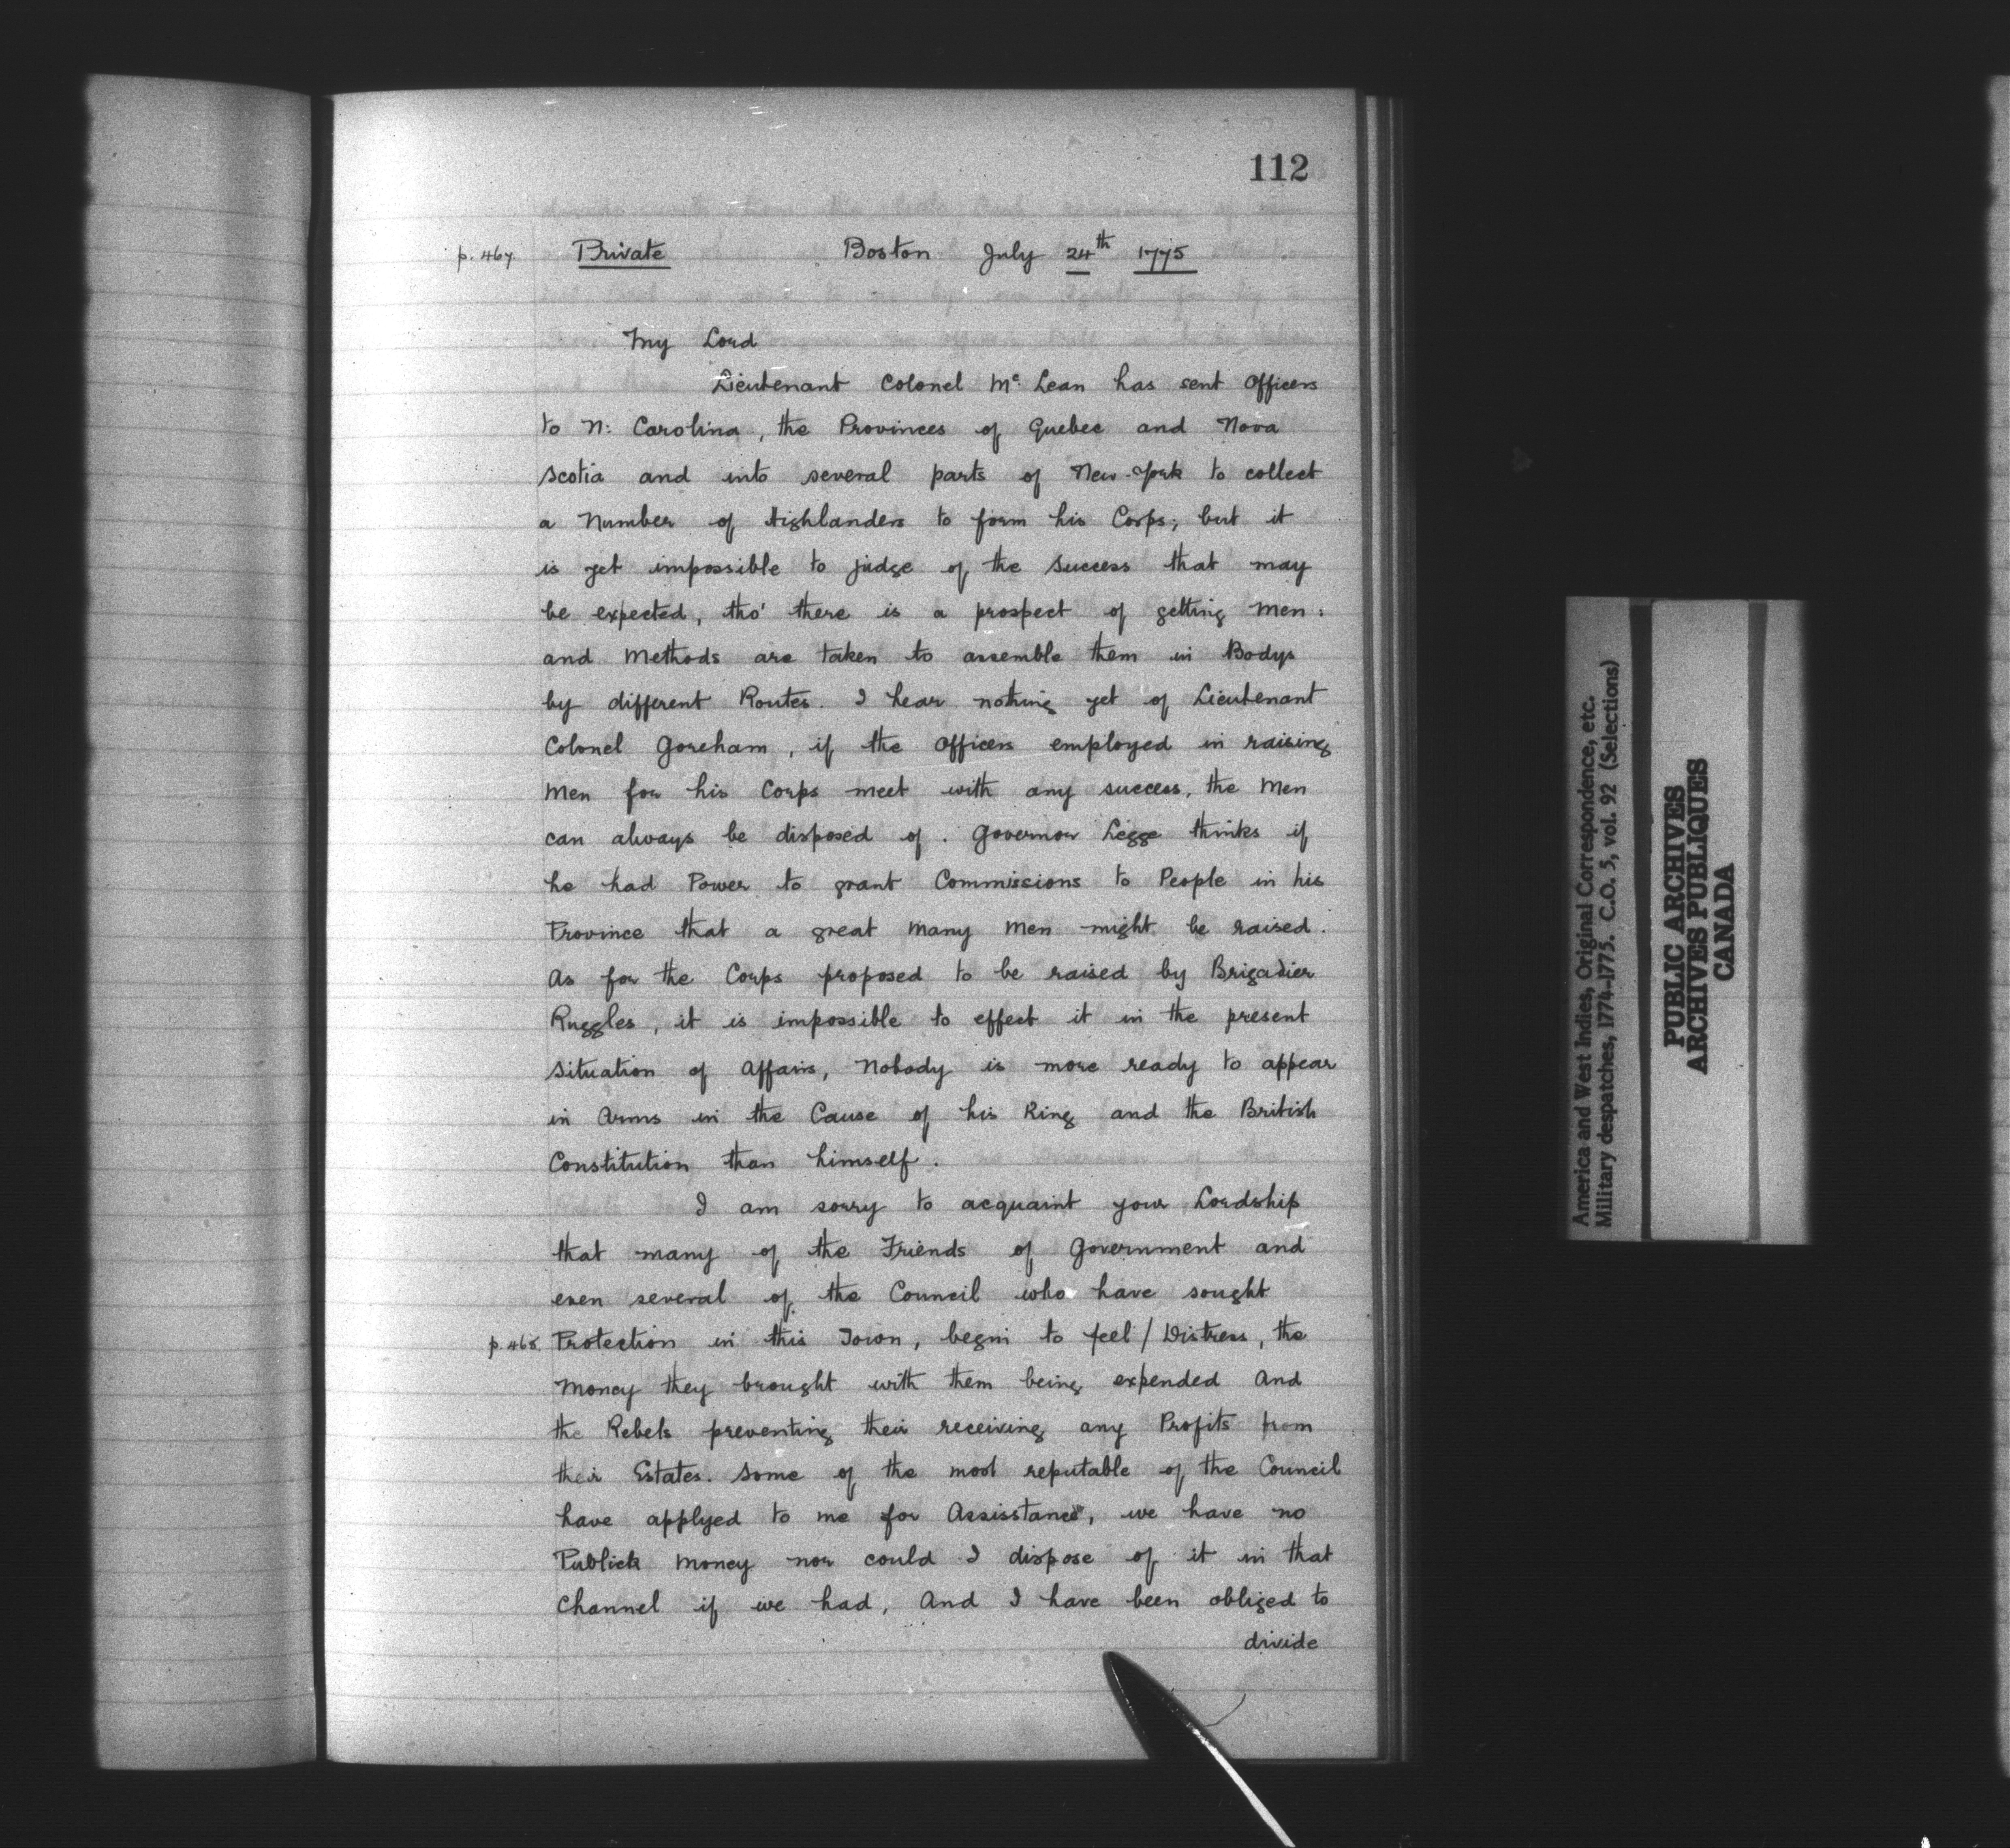 112
p. 467. Private Boston July 24th 1775
My Lord
Lieutenant Colonel Mc Lean has sent Officers
to N: Carolina, the Provinces of Quebec and Nova
Scotia and into several parts of New-York to collect
a Number of Highlanders to form his Corps; but it
is yet impossible to judge of the Success that may
be expected, tho' there is a prospect of getting Men:
and Methods are taken to assemble them in Bodys
by different Routes. I hear nothing yet of Lieutenant
Colonel Goreham, if the Officers employed in raising
Men for his Corps meet with any success, the Men
can always be disposed of. Governor Legge thinks if
he had Power to grant Commissions to People in his
Province that a great many Men might be raised.
As for the Corps proposed to be raised by Brigadier
Ruggles, it is impossible to effect it in the present
Situation of Affairs, Nobody is more ready to appear
in Arms in the Cause of his King and the British
Constitution than himself.
I am sorry to acquaint your Lordship
that many of the Friends of Government and
even several of the Council who have sought
p. 468. Protection in this Town, begin to feel / Distress, the
Money they brought with them being expended And
the Rebels preventing their receiving any Profits from
their Estates. Some of the most reputable of the Council
have applyed to me for Assisstance, we have no
Publick Money nor could I dispose of it in that
Channel if we had, And I have been obliged to
divide
America and West Indies, Original Correspondence, etc.
Military despatches, 1774-1775. C.O. 5, vol. 92 (Selections)
PUBLIC ARCHIVES
ARCHIVES PUBLIQUES
CANADA